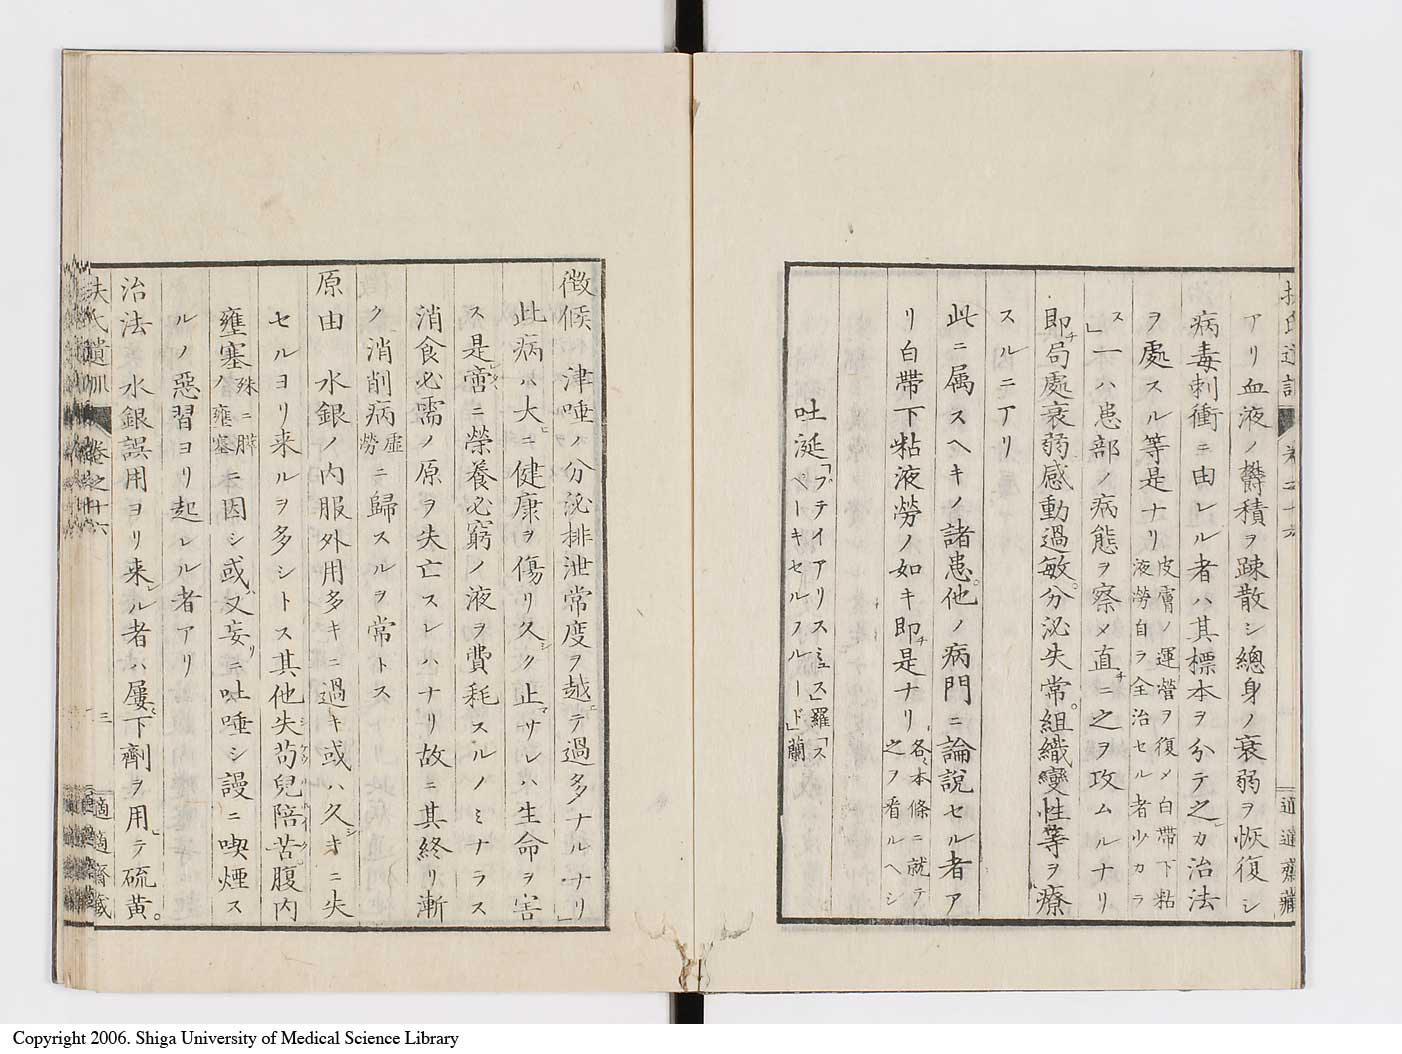 アリ血液ノ欝積ヲ疎散シ總身ノ衰弱ヲ恢復シ
病毒刺衝ニ由レル者ハ其標本ヲ分テ之カ治法
ヲ處スル等是ナリ皮膚ノ運營ヲ復メ白帶下粘液勞自ラ全治セル者少カラス」
一ハ患部ノ病態ヲ察メ直チニ之ヲ攻ムルナリ
即チ局處衰弱感動過敏。分泌失常。組織變性等ヲ療
スルニアリ
此ニ属スヘキノ諸患。他ノ病門ニ論説セル者ア
リ白帶下粘液勞ノ如キ即チ是ナリ各々本條ニ就テ之ヲ看ルヘシ
吐涎「プテイアリスミュス」羅「スペーキセルフルード」蘭
適適齋藏
徴候 津唾ノ分泌排泄常度ヲ越エテ過多ナルナリ」
此病ハ大ニ健康ヲ傷リ久シク止マサレハ生命ヲ害
ス是レ啻ニ榮養必窮ノ液ヲ費耗スルノミナラス
消食必需ノ原ヲ失亡スレハナリ故ニ其終リ漸
ク消削病虚勞ニ歸スルヲ常トス
原由 水銀ノ内服外用多キニ過キ或ハ久シキニ失
セルヨリ来ルヲ多シトス其他失苟兒陪苦腹内
壅塞殊ニ脾ノ壅塞ニ因シ或ハ又妄リニ吐唾シ謾ニ喫煙ス
ルノ惡習ヨリ起レル者アリ
治法 水銀誤用ヨリ来レル者ハ屢下劑ヲ用ヒテ硫黄。
扶氏遺訓 卷之十六
三
適適齋藏
Copyright 2006. Shiga University of Medical Science Library